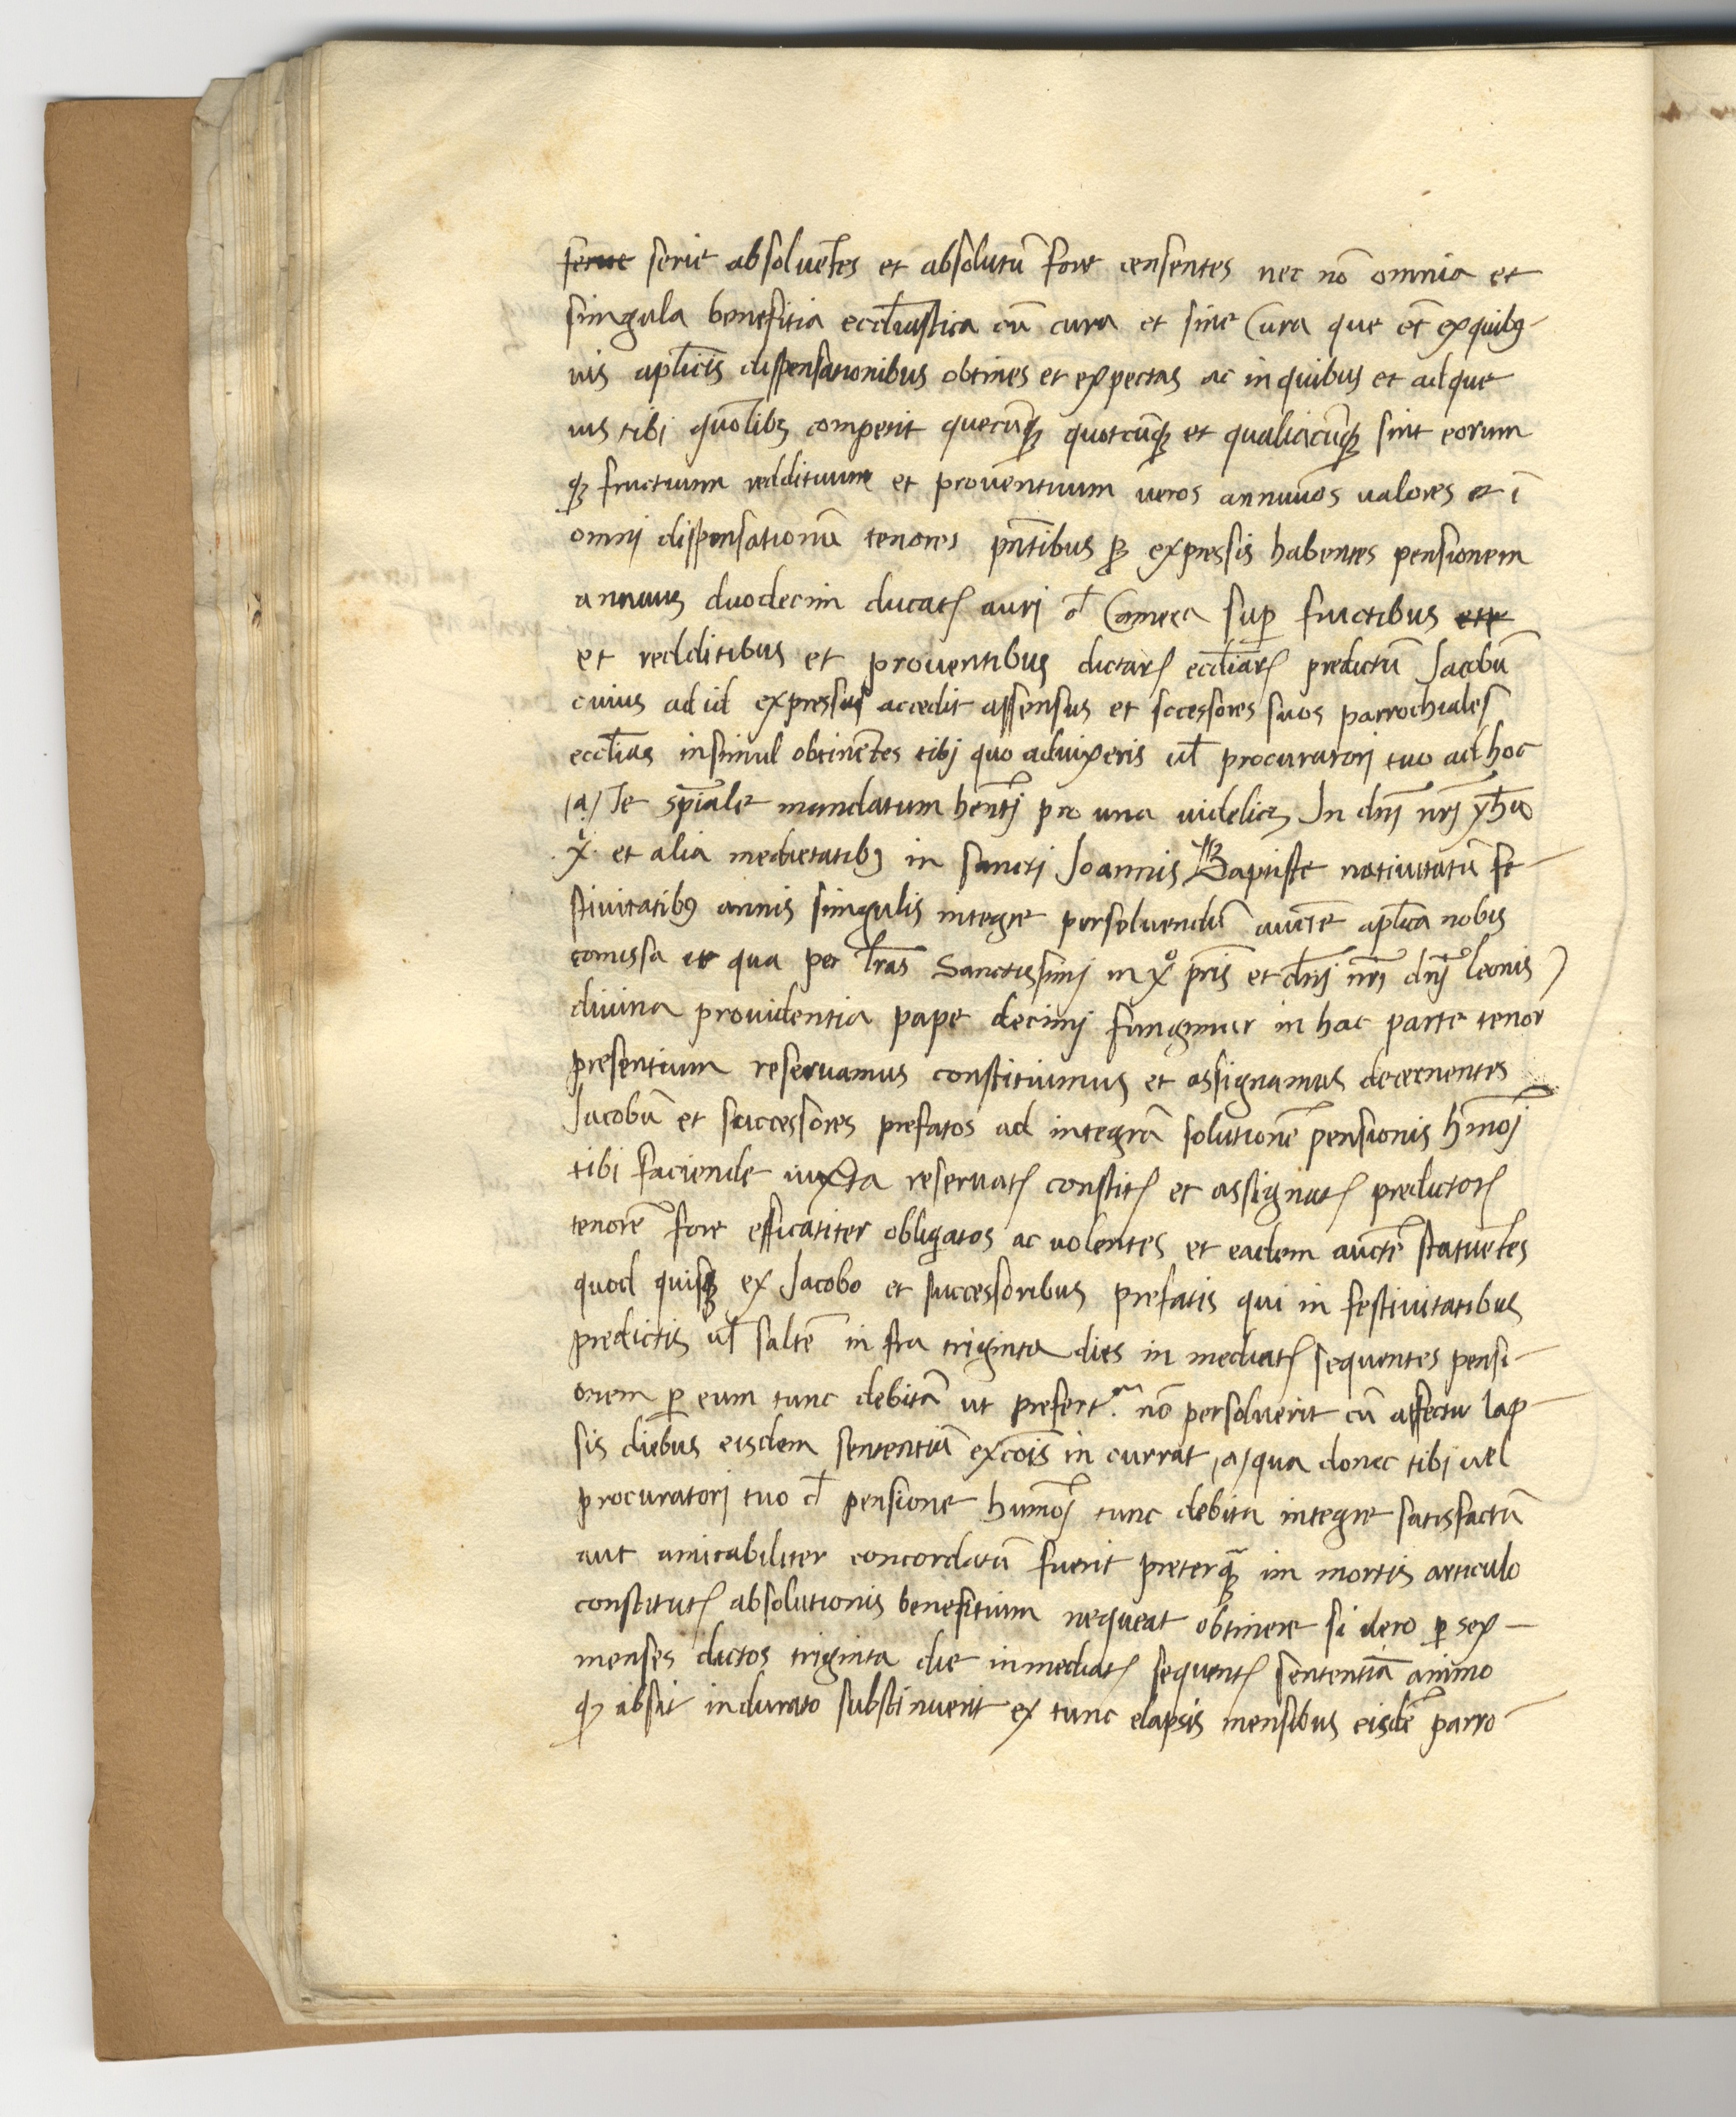 serue serie absoluētes et absolutū fore censentes nec nō omnia et
singula benefitia eccl̄iastica cū cura et sine Cura que et̄ ex quibꝰ-
uis apl̄icis dispensationibus obtines et expectas ac in quibus et ad que
ius tibi quōlibꝫ competit quecūqꝫ quotcūqꝫ et qualiacūqꝫ sint eorum
qꝫ fructuum reddituum et prouentuum ueros annuuos valores et ī
omnj dispensationū tenores pn̄tibus ꝓ expressis habentes pensionem
annuus duodecim ducatꝝ aurj d̄ Camera sup̱ fructibus ette
et redditibus et prouentibus dictarꝝ eccl̄iarꝝ predictū Jacobū
cuius ad id expressus accedit assensus et sccessores suos parrochiales
eccl̄ias insimul obtinētes tibj quo aduixeris ul̄ procuratorj tuo ad hoc
(a) Te sp̄iale mandatum hēntj pro una uidelicꝫ In dn̄j nr̄j yh̄u
.x̊. et alia medietatibꝰ in sanctj Joannis Baptiste natiuitatū fe-
stiuitatibꝰ annis singulis integre persoluendū auctē apl̄ica nobis
comissa et qua per lr̄as Sanctissimj in x̊ pr̄is et dn̄j nr̄j dn̄j Leonis
diuina prouidentia pape decimj fungimur in hac parte tenor
presentium reseruamus constituimus et assignamus decernentes
Jacobū et successores prefatos ad integrā solutionē pensionis hm̄oj
tibi faciende iuxta reseruatꝝ constitꝝ et assignatꝝ predictorꝝ
tenorē fore efficatiter obligatos ac uolentes et eadem auctē statuētes
quod quisqꝫ ex Jacobo et successoribus prefatis qui in festiuitatibus
predictis ul̄ saltē in fra triginta dies in mediatꝝ sequentes pensi-
onem ꝑ eum tunc debitā ut prefert.r nō persoluerit cū affectu lap-
sis diebus eisdem sententiā excōis in currat (a) qua donec tibi uel
procuratorj tuo d̄ pensione humōj tunc debita integre satisfactū
aut amicabiliter concordatū fuerit preterqꝫ im mortis articulo
constitutꝝ absolutionis benefitium nequeat obtinere si uero ꝑ sex-
menses dictos triginta die inmediatꝝ sequentꝝ sententiā animo
qꝫ absit indurato substinuerit ex tunc elapsis mensibus eisdē parro-